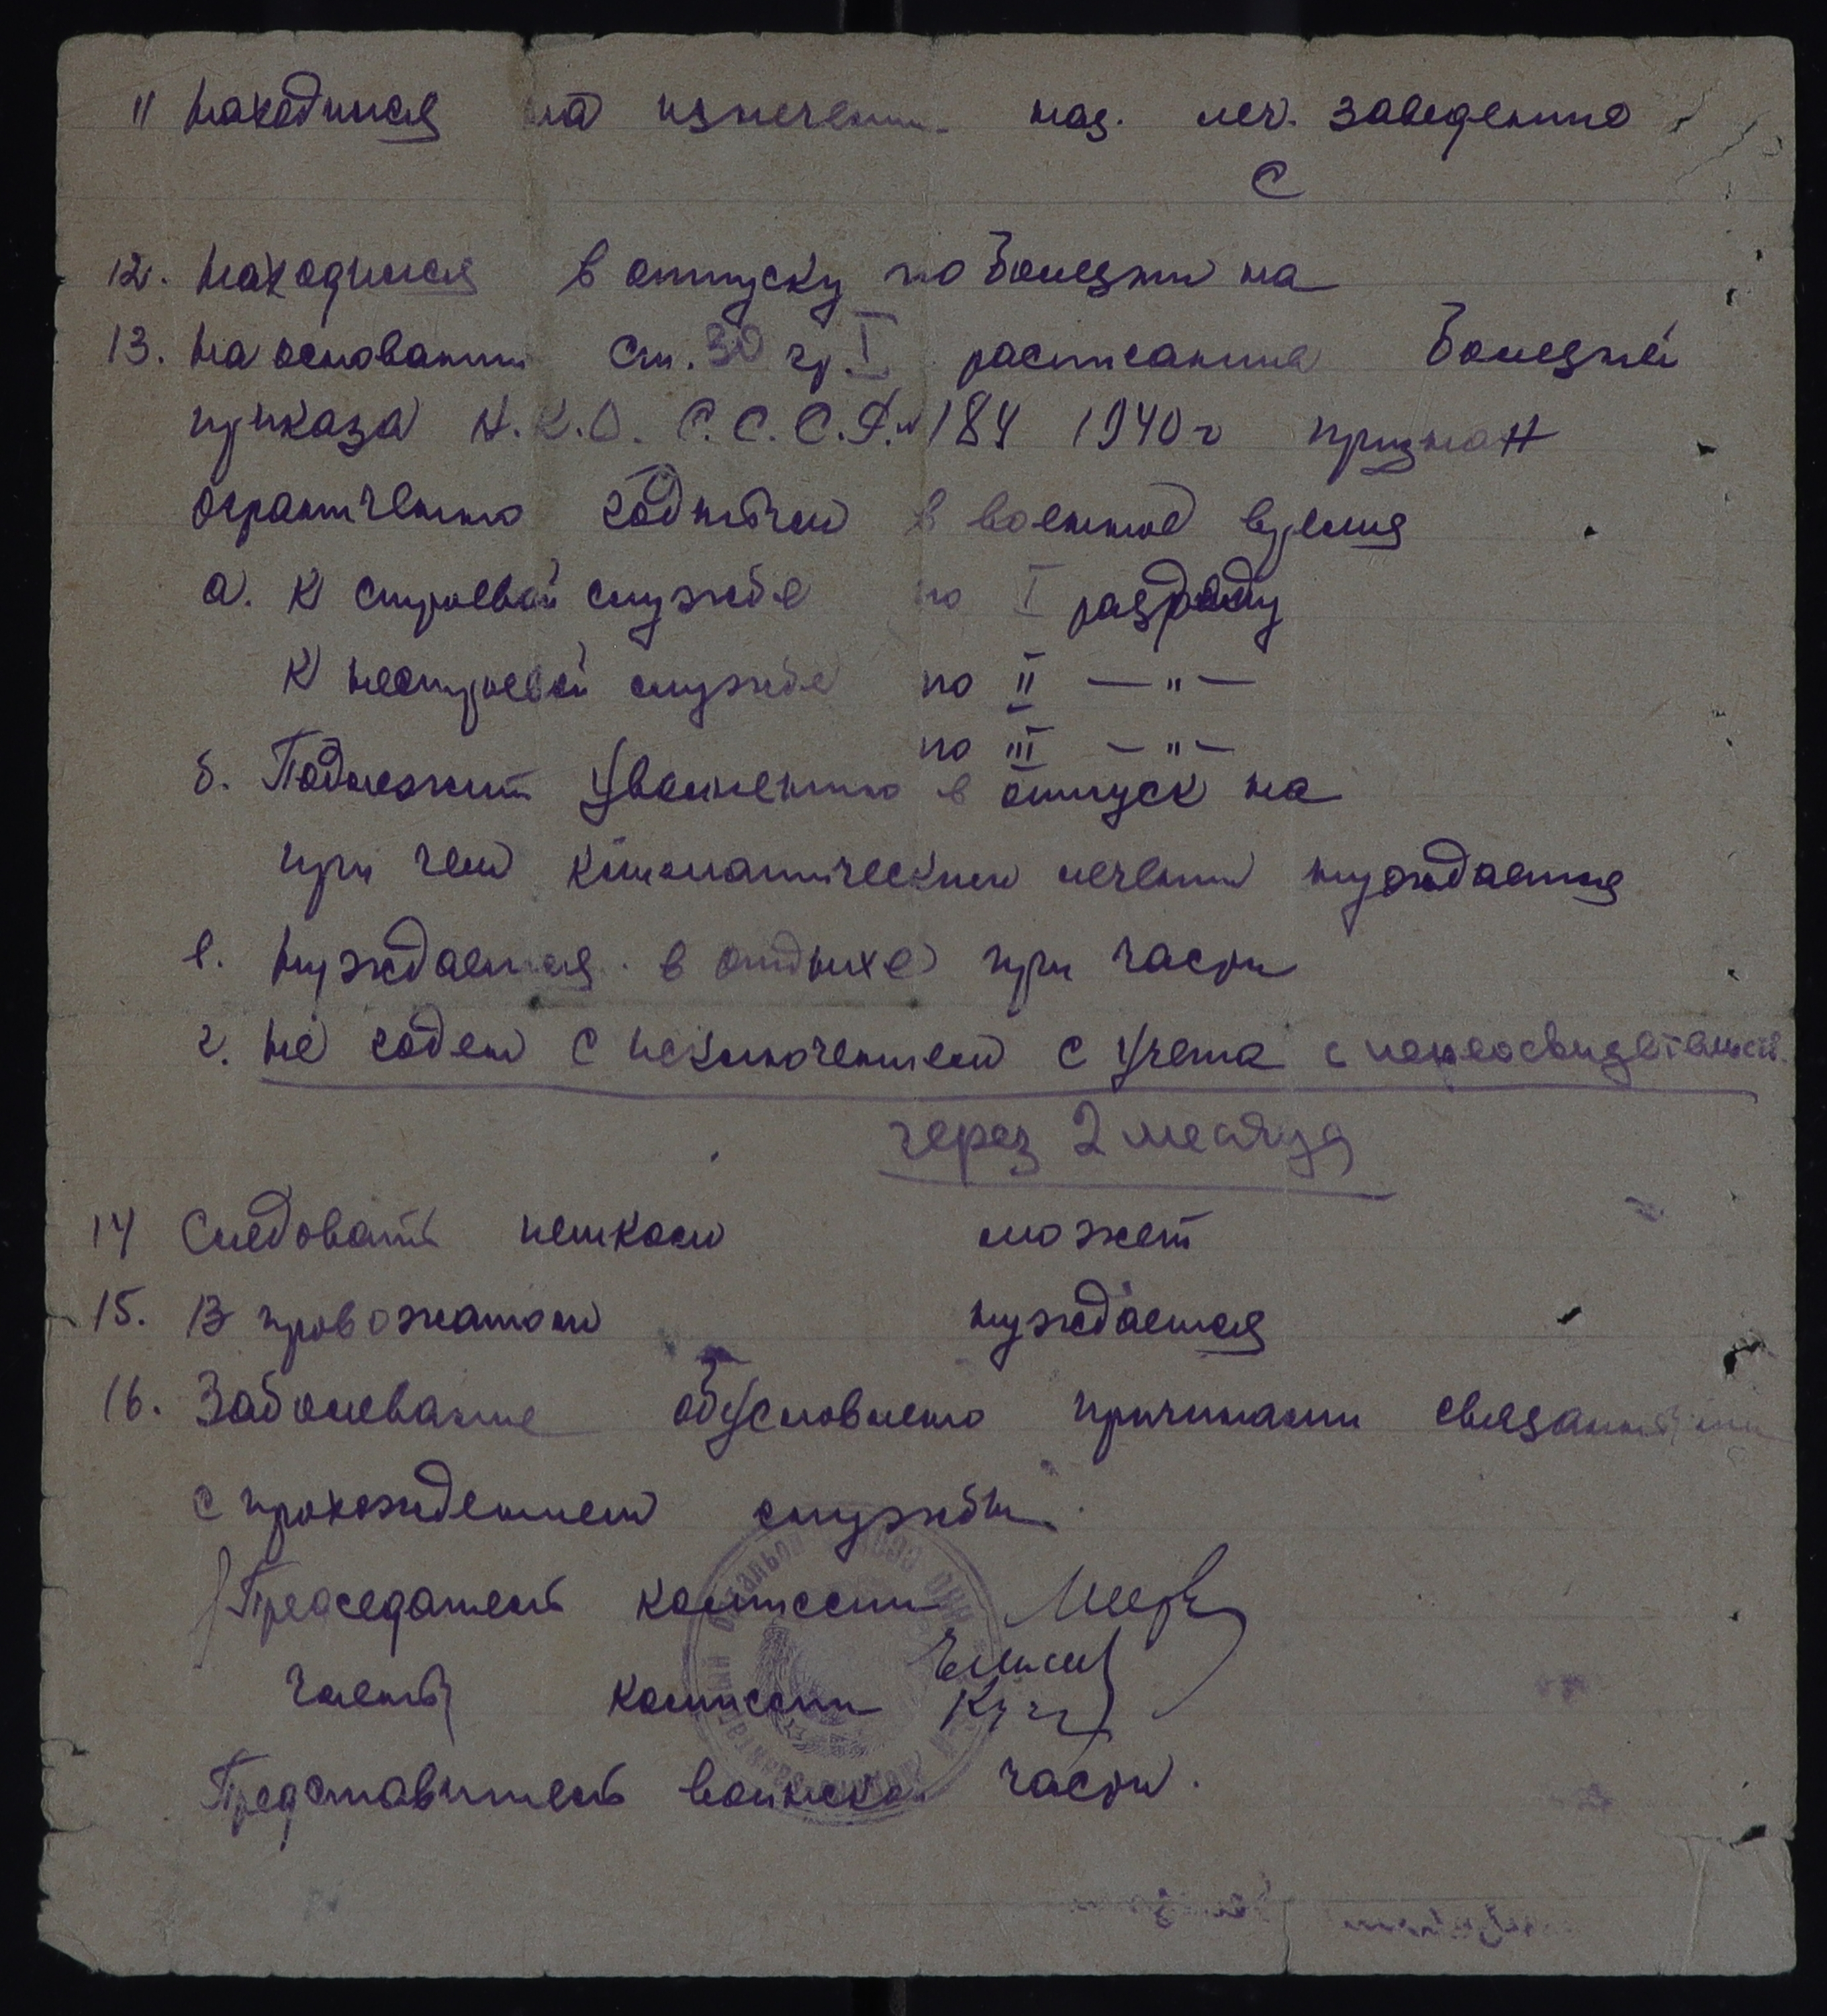 11 Находился на излечении наз. леч. заведение
С
12. Находился в отпуску по болезни на
13. На основании ст. 30 гр. I расписания болезней
приказа Н.К.О. С.С.С.Р. № 184 1940 г признан
ограниченно годным в военное время
а. К строевой службе по I разряду
К нестроевой службе по II — " —
по III — " —
б. Подлежит увольнению в отпуск на
при чем климатическом лечении нуждается
в. Нуждается в отдыхе при части
г. Не годен с исключением с учета с переосвидетельств.
через 2 месяца
14 Следовать пешком может
15. В провожатом нуждается
16. Заболевание обусловлено причинами связанными
с прохождением службы.
Председатель комиссии
Члены комиссии
Представитель воинской части.